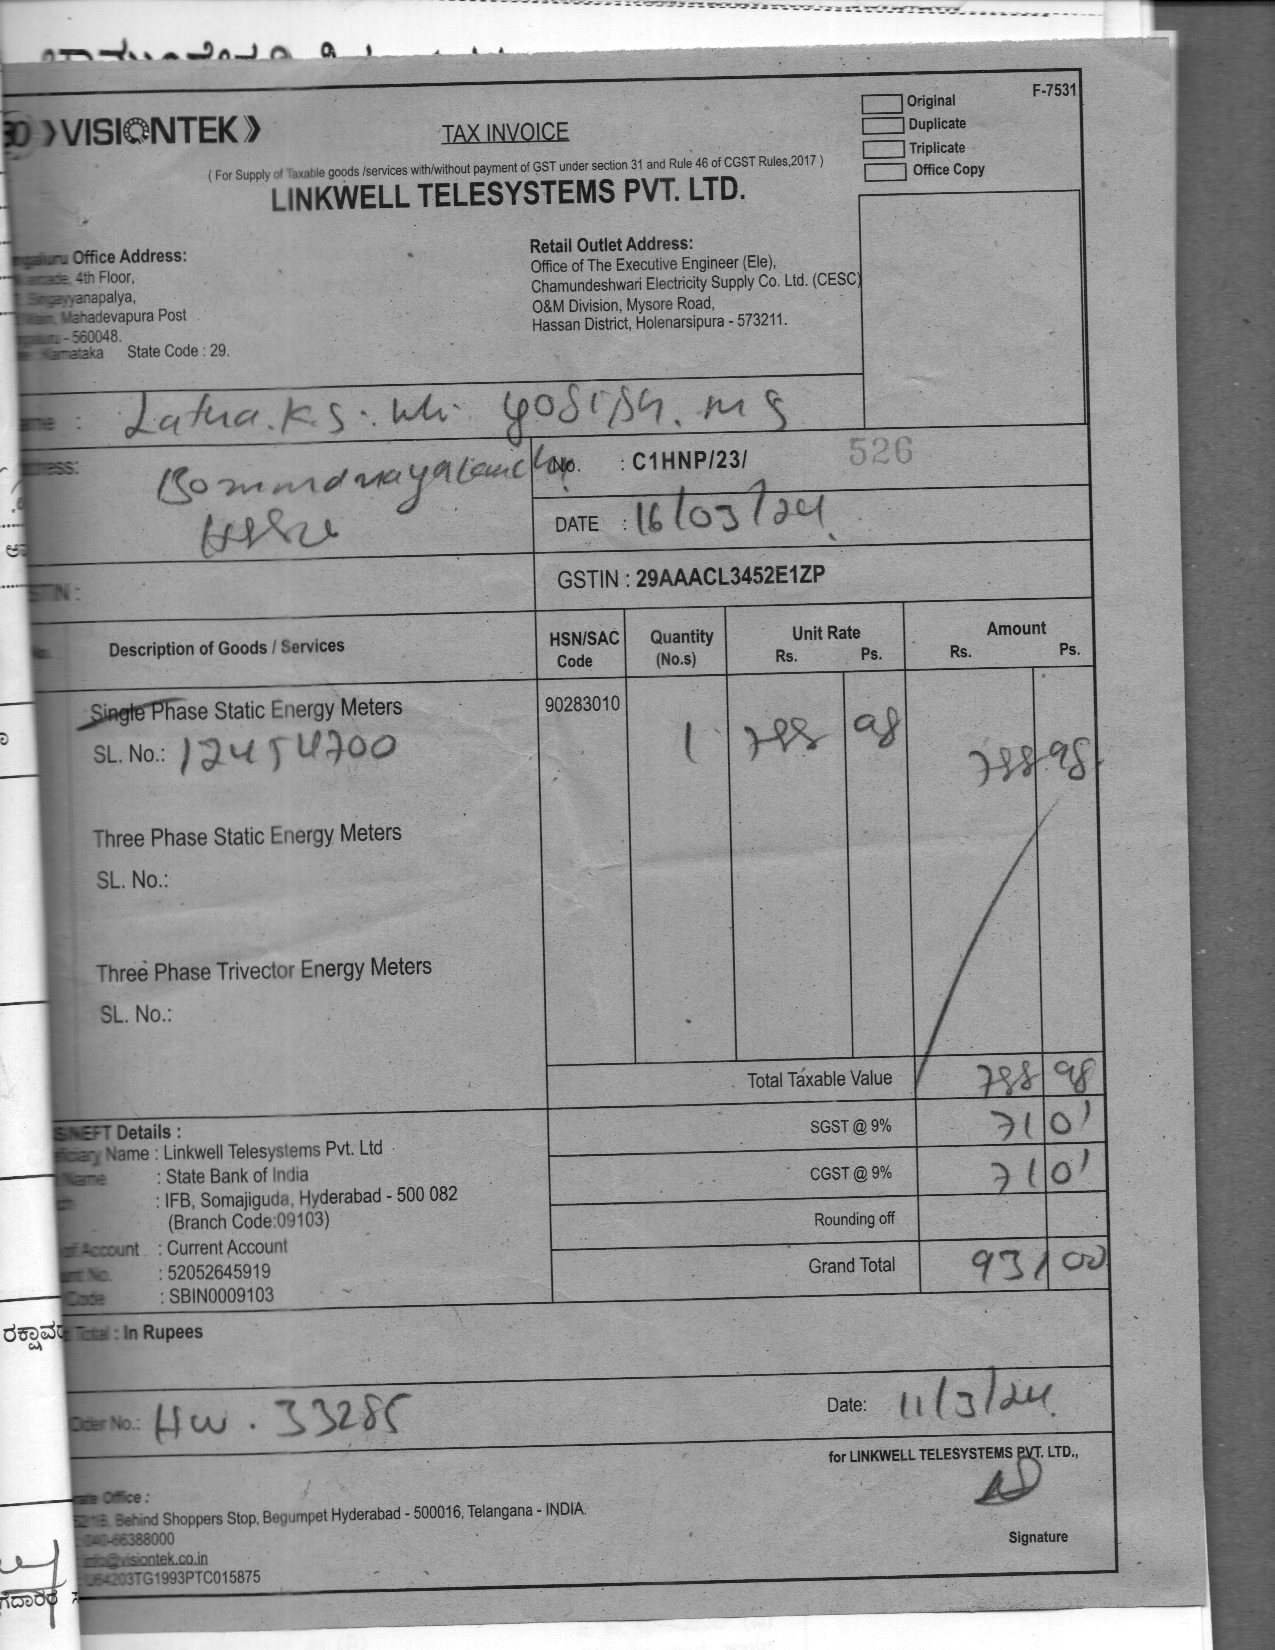 F-7531
Original
Duplicate
Triplicate
Office Copy
VISIONTEK
TAX INVOICE
( For Supply of Taxable goods /services with/without payment of GST under section 31 and Rule 46 of CGST Rules,2017 )
LINKWELL TELESYSTEMS PVT. LTD.
Office Address:
4th Floor,
Singayyanapalya,
Mahadevapura Post
- 560048.
Karnataka State Code : 29.
Retail Outlet Address:
Office of The Executive Engineer (Ele),
Chamundeshwari Electricity Supply Co. Ltd. (CESC)
O&M Division, Mysore Road,
Hassan District, Holenarsipura - 573211.
: Latha.K.S.
No. : C1HNP/23/ 526
DATE : 16/03/24
GSTIN : 29AAACL3452E1ZP
Description of Goods / Services HSN/SAC Code Quantity (No.s) Unit Rate Rs. Ps. Amount Rs. Ps.
Single Phase Static Energy Meters 90283010 1 788 98 788 98
SL. No.: 12454700
Three Phase Static Energy Meters
SL. No.:
Three Phase Trivector Energy Meters
SL. No.:
Total Taxable Value 788 98
SGST @ 9% 71 01
CGST @ 9% 71 01
Rounding off
Grand Total 931 00
Details :
Name : Linkwell Telesystems Pvt. Ltd
Name : State Bank of India
: IFB, Somajiguda, Hyderabad - 500 082
(Branch Code:09103)
of Account : Current Account
: 52052645919
Code : SBIN0009103
Total : In Rupees
Order No.: HW . 33285
Date: 11/3/24
for LINKWELL TELESYSTEMS PVT. LTD.,
Signature
Office :
Behind Shoppers Stop, Begumpet Hyderabad - 500016, Telangana - INDIA.
040-66388000
info@visiontek.co.in
U64203TG1993PTC015875